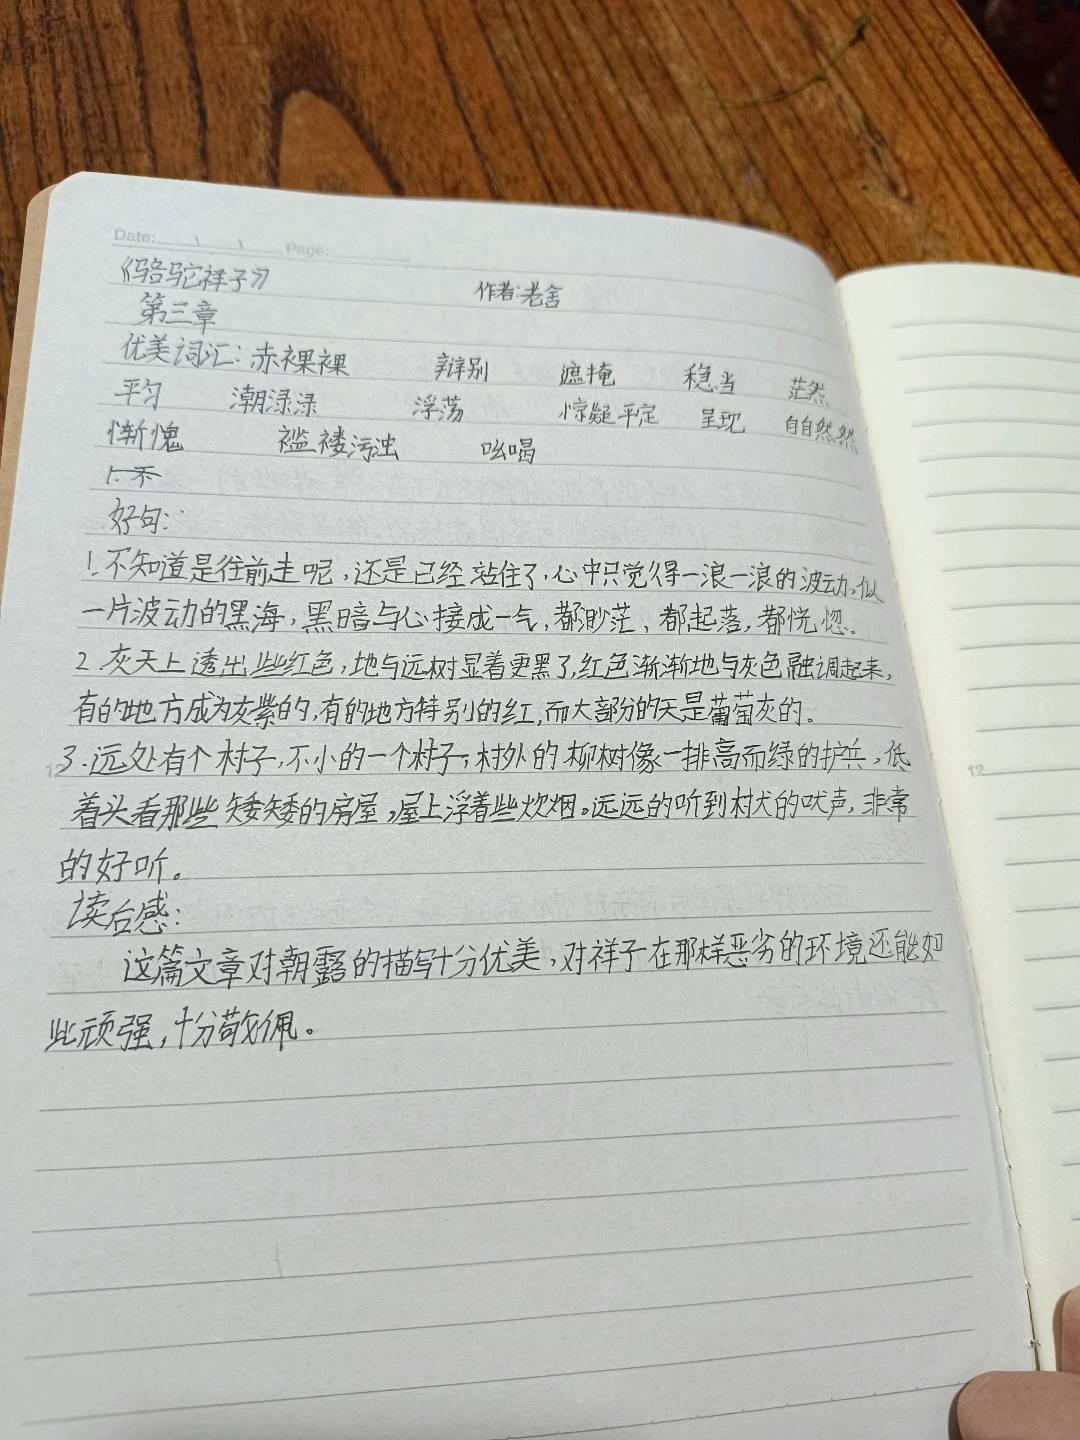 Date: Page:
《骆驼祥子》 作者:老舍
第三章
优美词汇:赤裸裸 辩别 遮掩 稳当 茫然
平匀 潮渌渌 浮荡 惊疑平定 呈现 自自然然
惭愧 褴褛污浊 吆喝
1.不
好句:
1.不知道是往前走呢,还是已经站住了,心中只觉得一浪一浪的波动,似
一片波动的黑海,黑暗与心接成一气,都渺茫、都起落,都恍惚。
2.灰天上透出些红色,地与远树显着更黑了,红色渐渐地与灰色融调起来,
有的地方成为灰紫的,有的地方特别的红,而大部分的天是葡萄灰的。
3.远处有个村子,不小的一个村子,村外的柳树像一排高而绿的护兵,低
着头看那些矮矮的房屋,屋上浮着些炊烟。远远的听到村犬的吠声,非常
的好听。
读后感:
这篇文章对朝露的描写十分优美,对祥子在那样恶劣的环境还能如
此顽强,十分敬佩。
12